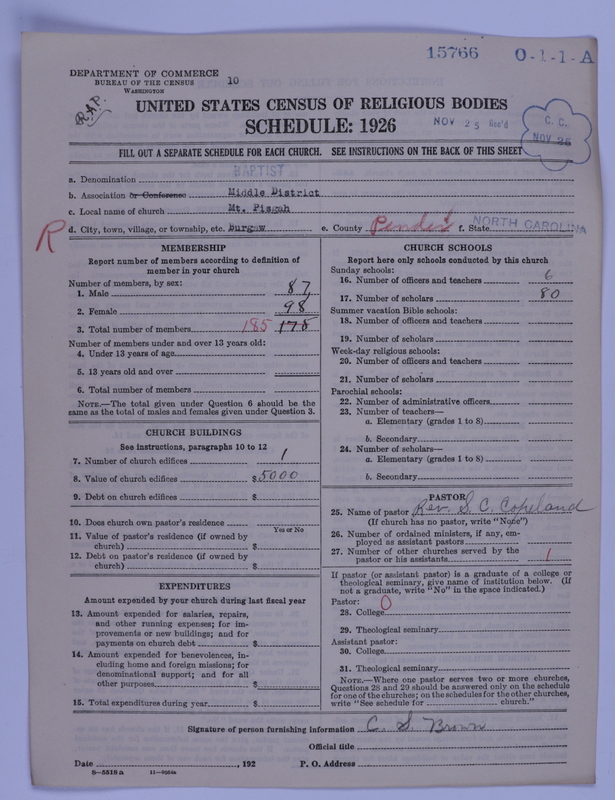 15766 0-1-1-A
DEPARTMENT OF COMMERCE
BUREAU OF THE CENSUS
WASHINGTON
10
R.A.P.
UNITED STATES CENSUS OF RELIGIOUS BODIES
SCHEDULE: 1926
NOV 25 Rec'd
C. C.
NOV 26
FILL OUT A SEPARATE SCHEDULE FOR EACH CHURCH. SEE INSTRUCTIONS ON THE BACK OF THIS SHEET
a. Denomination BAPTIST
b. Association or Conference Middle District
c. Local name of church Mt. Pisgah
R d. City, town, village, or township, etc. Burgaw e. County Pender f. State NORTH CAROLINA
MEMBERSHIP
Report number of members according to definition of
member in your church
Number of members, by sex:
1. Male 87
2. Female 98
3. Total number of members 185 175
Number of members under and over 13 years old:
4. Under 13 years of age
5. 13 years old and over
6. Total number of members
NOTE.—The total given under Question 6 should be the
same as the total of males and females given under Question 3.
CHURCH BUILDINGS
See instructions, paragraphs 10 to 12
7. Number of church edifices 1
8. Value of church edifices $ 5000
9. Debt on church edifices $
10. Does church own pastor's residence
Yes or No
11. Value of pastor's residence (if owned by
church) $
12. Debt on pastor's residence (if owned by
church) $
EXPENDITURES
Amount expended by your church during last fiscal year
13. Amount expended for salaries, repairs,
and other running expenses; for im-
provements or new buildings; and for
payments on church debt $
14. Amount expended for benevolences, in-
cluding home and foreign missions; for
denominational support; and for all
other purposes $
15. Total expenditures during year $
CHURCH SCHOOLS
Report here only schools conducted by this church
Sunday schools:
16. Number of officers and teachers 6
17. Number of scholars 80
Summer vacation Bible schools:
18. Number of officers and teachers
19. Number of scholars
Week-day religious schools:
20. Number of officers and teachers
21. Number of scholars
Parochial schools:
22. Number of administrative officers
23. Number of teachers—
a. Elementary (grades 1 to 8)
b. Secondary
24. Number of scholars—
a. Elementary (grades 1 to 8)
b. Secondary
PASTOR
25. Name of pastor Rev. S. C. Copeland
(If church has no pastor, write "None")
26. Number of ordained ministers, if any, em-
ployed as assistant pastors
27. Number of other churches served by the
pastor or his assistants 1
If pastor (or assistant pastor) is a graduate of a college or
theological seminary, give name of institution below. (If
not a graduate, write "No" in the space indicated.)
Pastor:
28. College 0
29. Theological seminary
Assistant pastor:
30. College
31. Theological seminary
NOTE.—Where one pastor serves two or more churches,
Questions 28 and 29 should be answered only on the schedule
for one of the churches; on the schedules for the other churches,
write "See schedule for church."
Signature of person furnishing information C. S. Brown
Official title
Date , 192 P. O. Address